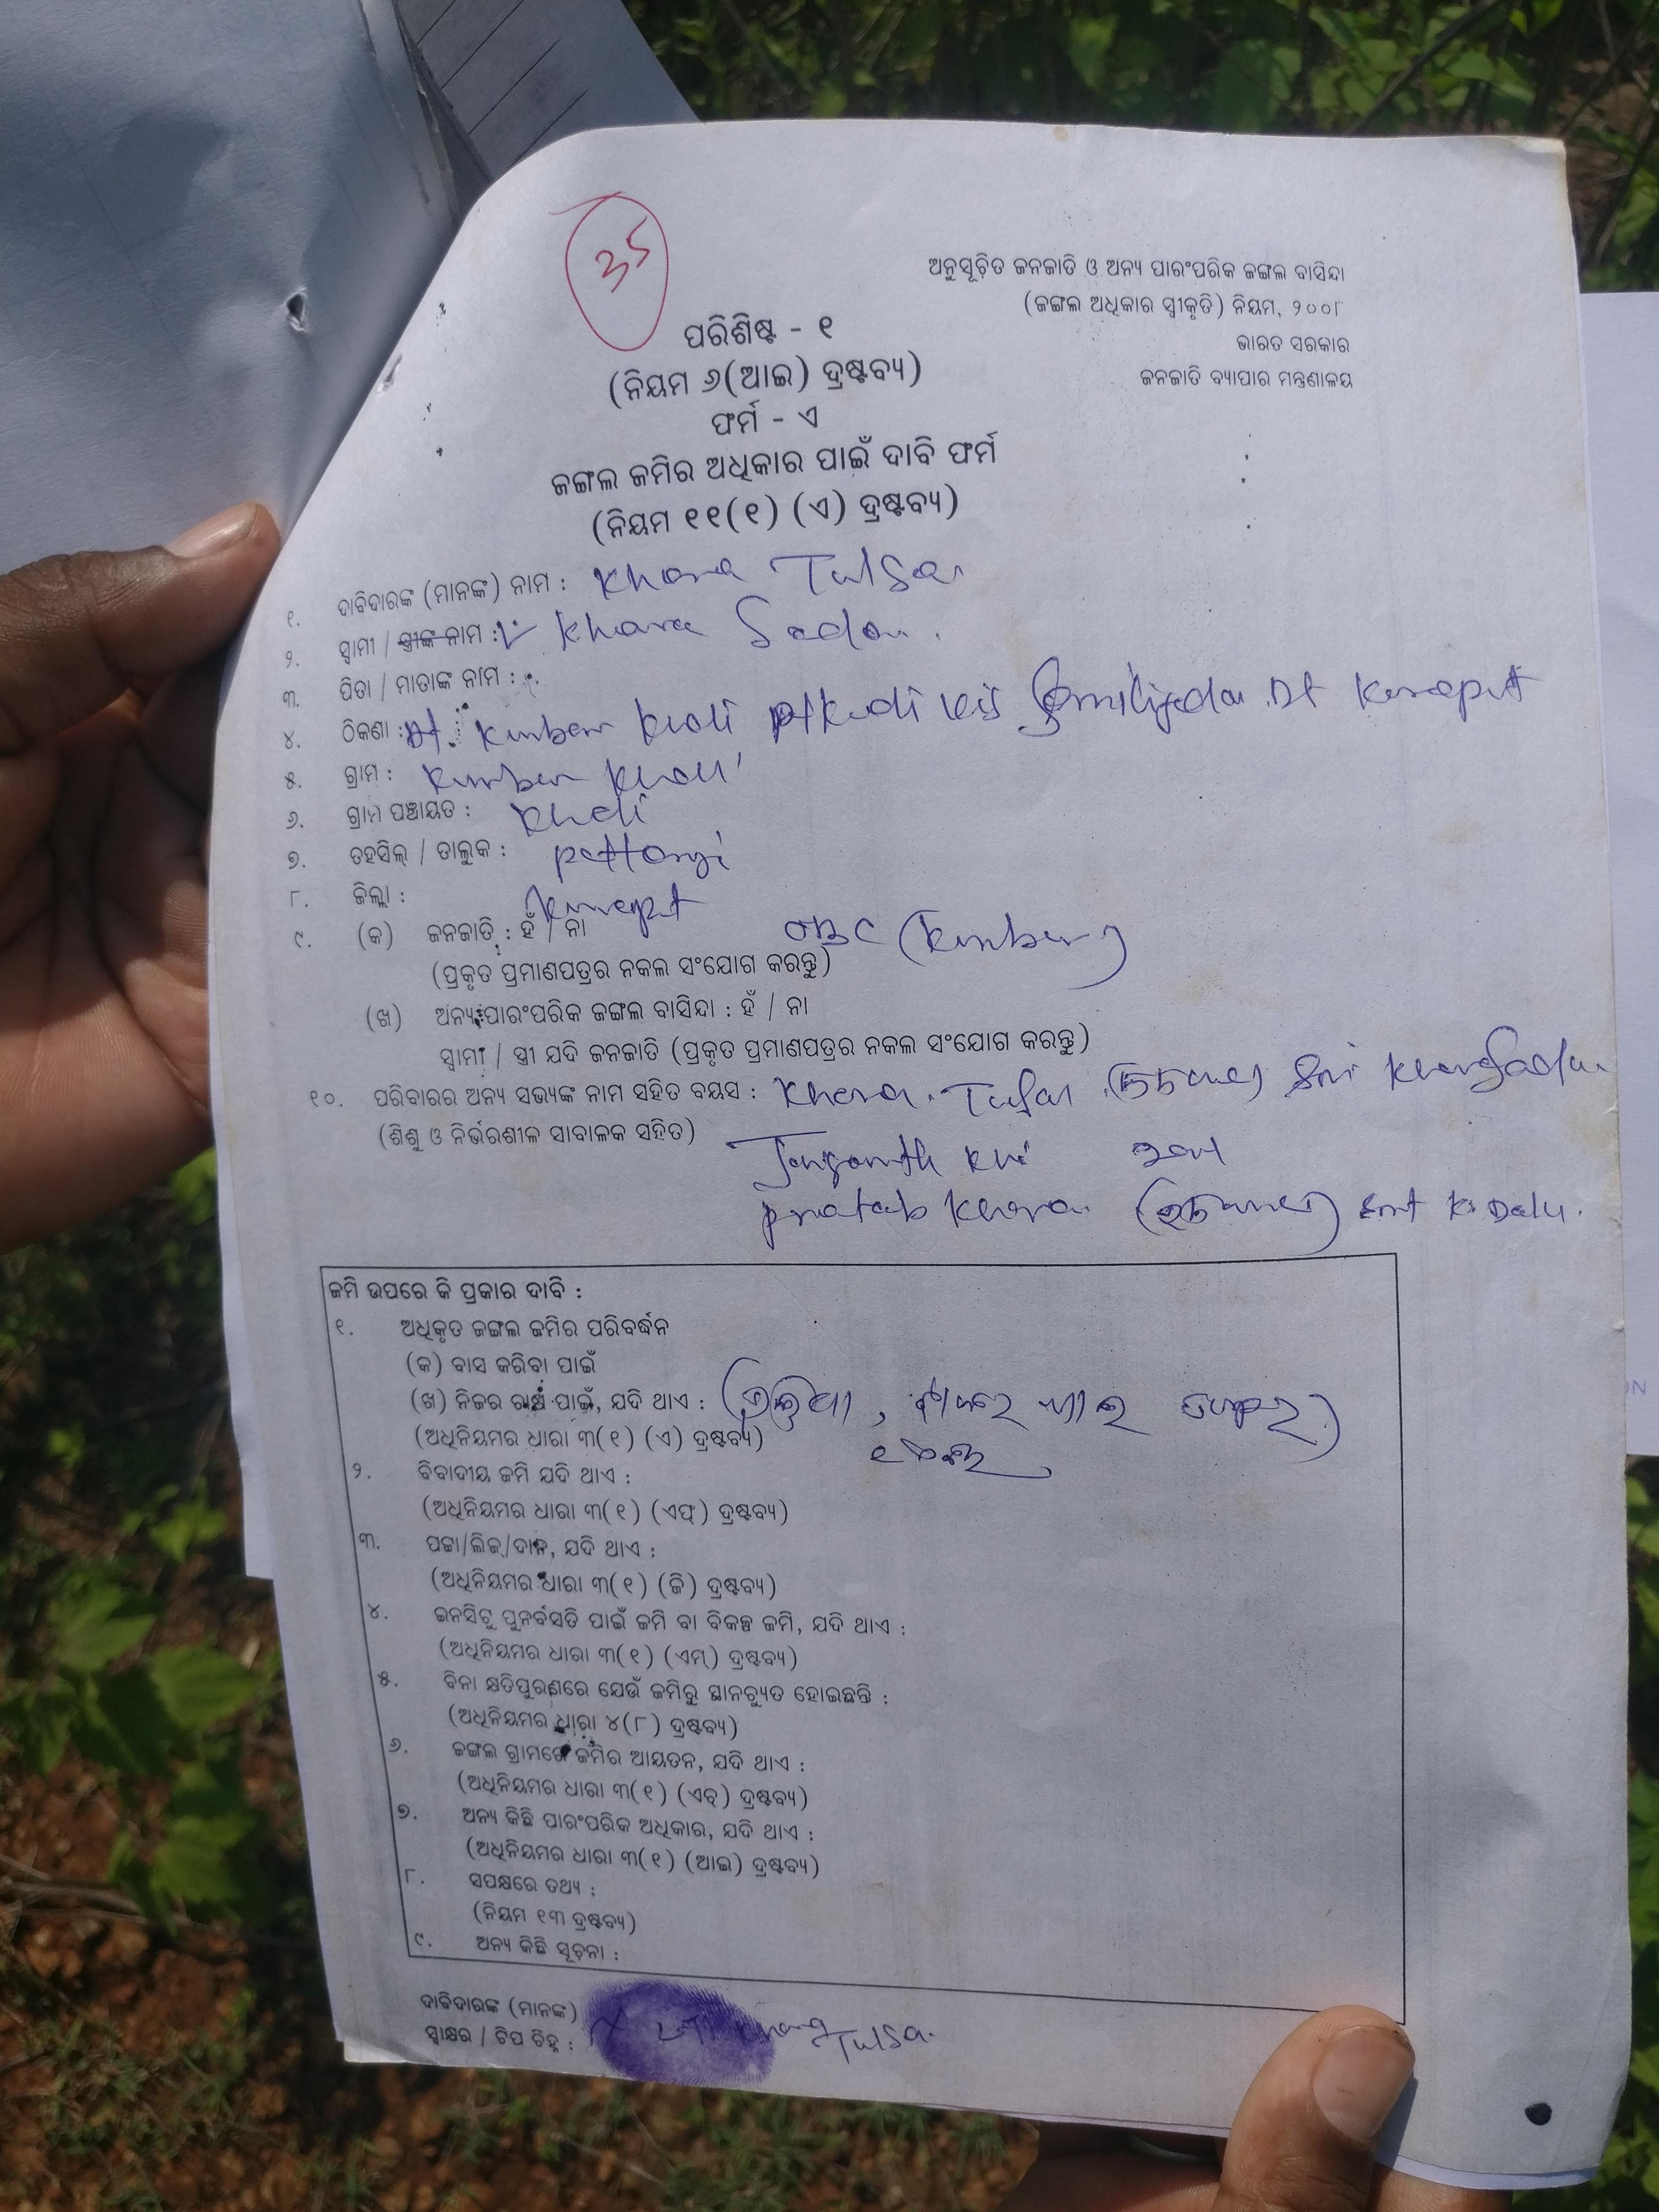 35
ଅନୁସୂଚିତ ଜନଜାତି ଓ ଅନ୍ୟ ପାରଂପରିକ ଜଙ୍ଗଲ ବାସିନ୍ଦା
(ଜଙ୍ଗଲ ଅଧିକାର ସ୍ୱୀକୃତି) ନିୟମ, ୨୦୦୮
ଭାରତ ସରକାର
ଜନଜାତି ବ୍ୟାପାର ମନ୍ତ୍ରଣାଳୟ
ପରିଶିଷ୍ଟ - ୧
(ନିୟମ ୬(ଆଇ) ଦ୍ରଷ୍ଟବ୍ୟ)
ଫର୍ମ - ଏ
ଜଙ୍ଗଲ ଜମିର ଅଧିକାର ପାଇଁ ଦାବି ଫର୍ମ
(ନିୟମ ୧୧(୧) (ଏ) ଦ୍ରଷ୍ଟବ୍ୟ)
୧. ଦାବିଦାରଙ୍କ (ମାନଙ୍କ) ନାମ : Khara Tulsa
୨. ସ୍ୱାମୀ / ସ୍ତ୍ରୀଙ୍କ ନାମ : Khara Sadan.
୩. ପିତା / ମାତାଙ୍କ ନାମ :
୪. ଠିକଣା :
୫. ଗ୍ରାମ :
୬. ଗ୍ରାମ ପଞ୍ଚାୟତ :
୭. ତହସିଲ୍ / ତାଲୁକ : pottangi
୮. ଜିଲ୍ଲା :
୯. (କ) ଜନଜାତି : ହଁ / ନା OBC
(ପ୍ରକୃତ ପ୍ରମାଣପତ୍ରର ନକଲ ସଂଯୋଗ କରନ୍ତୁ)
(ଖ) ଅନ୍ୟ ପାରଂପରିକ ଜଙ୍ଗଲ ବାସିନ୍ଦା : ହଁ / ନା
ସ୍ୱାମୀ / ସ୍ତ୍ରୀ ଯଦି ଜନଜାତି (ପ୍ରକୃତ ପ୍ରମାଣପତ୍ରର ନକଲ ସଂଯୋଗ କରନ୍ତୁ)
୧୦. ପରିବାରର ଅନ୍ୟ ସଭ୍ୟଙ୍କ ନାମ ସହିତ ବୟସ : Khara
(ଶିଶୁ ଓ ନିର୍ଭରଶୀଳ ସାବାଳକ ସହିତ)
pratab Khara
ଜମି ଉପରେ କି ପ୍ରକାର ଦାବି :
୧. ଅଧିକୃତ ଜଙ୍ଗଲ ଜମିର ପରିବର୍ଦ୍ଧନ
(କ) ବାସ କରିବା ପାଇଁ
(ଖ) ନିଜର ଚାଷ ପାଇଁ, ଯଦି ଥାଏ :
(ଅଧିନିୟମର ଧାରା ୩(୧) (ଏ) ଦ୍ରଷ୍ଟବ୍ୟ)
୨. ବିବାଦୀୟ ଜମି ଯଦି ଥାଏ :
(ଅଧିନିୟମର ଧାରା ୩(୧) (ଏଫ୍) ଦ୍ରଷ୍ଟବ୍ୟ)
୩. ପଟ୍ଟା/ଲିଜ୍/ଦାନ, ଯଦି ଥାଏ :
(ଅଧିନିୟମର ଧାରା ୩(୧) (ଜି) ଦ୍ରଷ୍ଟବ୍ୟ)
୪. ଇନସିଟୁ ପୁନର୍ବସତି ପାଇଁ ଜମି ବା ବିକଳ୍ପ ଜମି, ଯଦି ଥାଏ :
(ଅଧିନିୟମର ଧାରା ୩(୧) (ଏମ୍) ଦ୍ରଷ୍ଟବ୍ୟ)
୫. ବିନା କ୍ଷତିପୁରଣରେ ଯେଉଁ ଜମିରୁ ସ୍ଥାନଚ୍ୟୁତ ହୋଇଛନ୍ତି :
(ଅଧିନିୟମର ଧାରା ୪(୮) ଦ୍ରଷ୍ଟବ୍ୟ)
୬. ଜଙ୍ଗଲ ଗ୍ରାମରେ ଜମିର ଆୟତନ, ଯଦି ଥାଏ :
(ଅଧିନିୟମର ଧାରା ୩(୧) (ଏଚ୍) ଦ୍ରଷ୍ଟବ୍ୟ)
୭. ଅନ୍ୟ କିଛି ପାରଂପରିକ ଅଧିକାର, ଯଦି ଥାଏ :
(ଅଧିନିୟମର ଧାରା ୩(୧) (ଆଇ) ଦ୍ରଷ୍ଟବ୍ୟ)
୮. ସପକ୍ଷରେ ତଥ୍ୟ :
(ନିୟମ ୧୩ ଦ୍ରଷ୍ଟବ୍ୟ)
୯. ଅନ୍ୟ କିଛି ସୂଚନା :
ଦାବିଦାରଙ୍କ (ମାନଙ୍କ)
ସ୍ୱାକ୍ଷର / ଟିପ ଚିହ୍ନ : Tulsa.